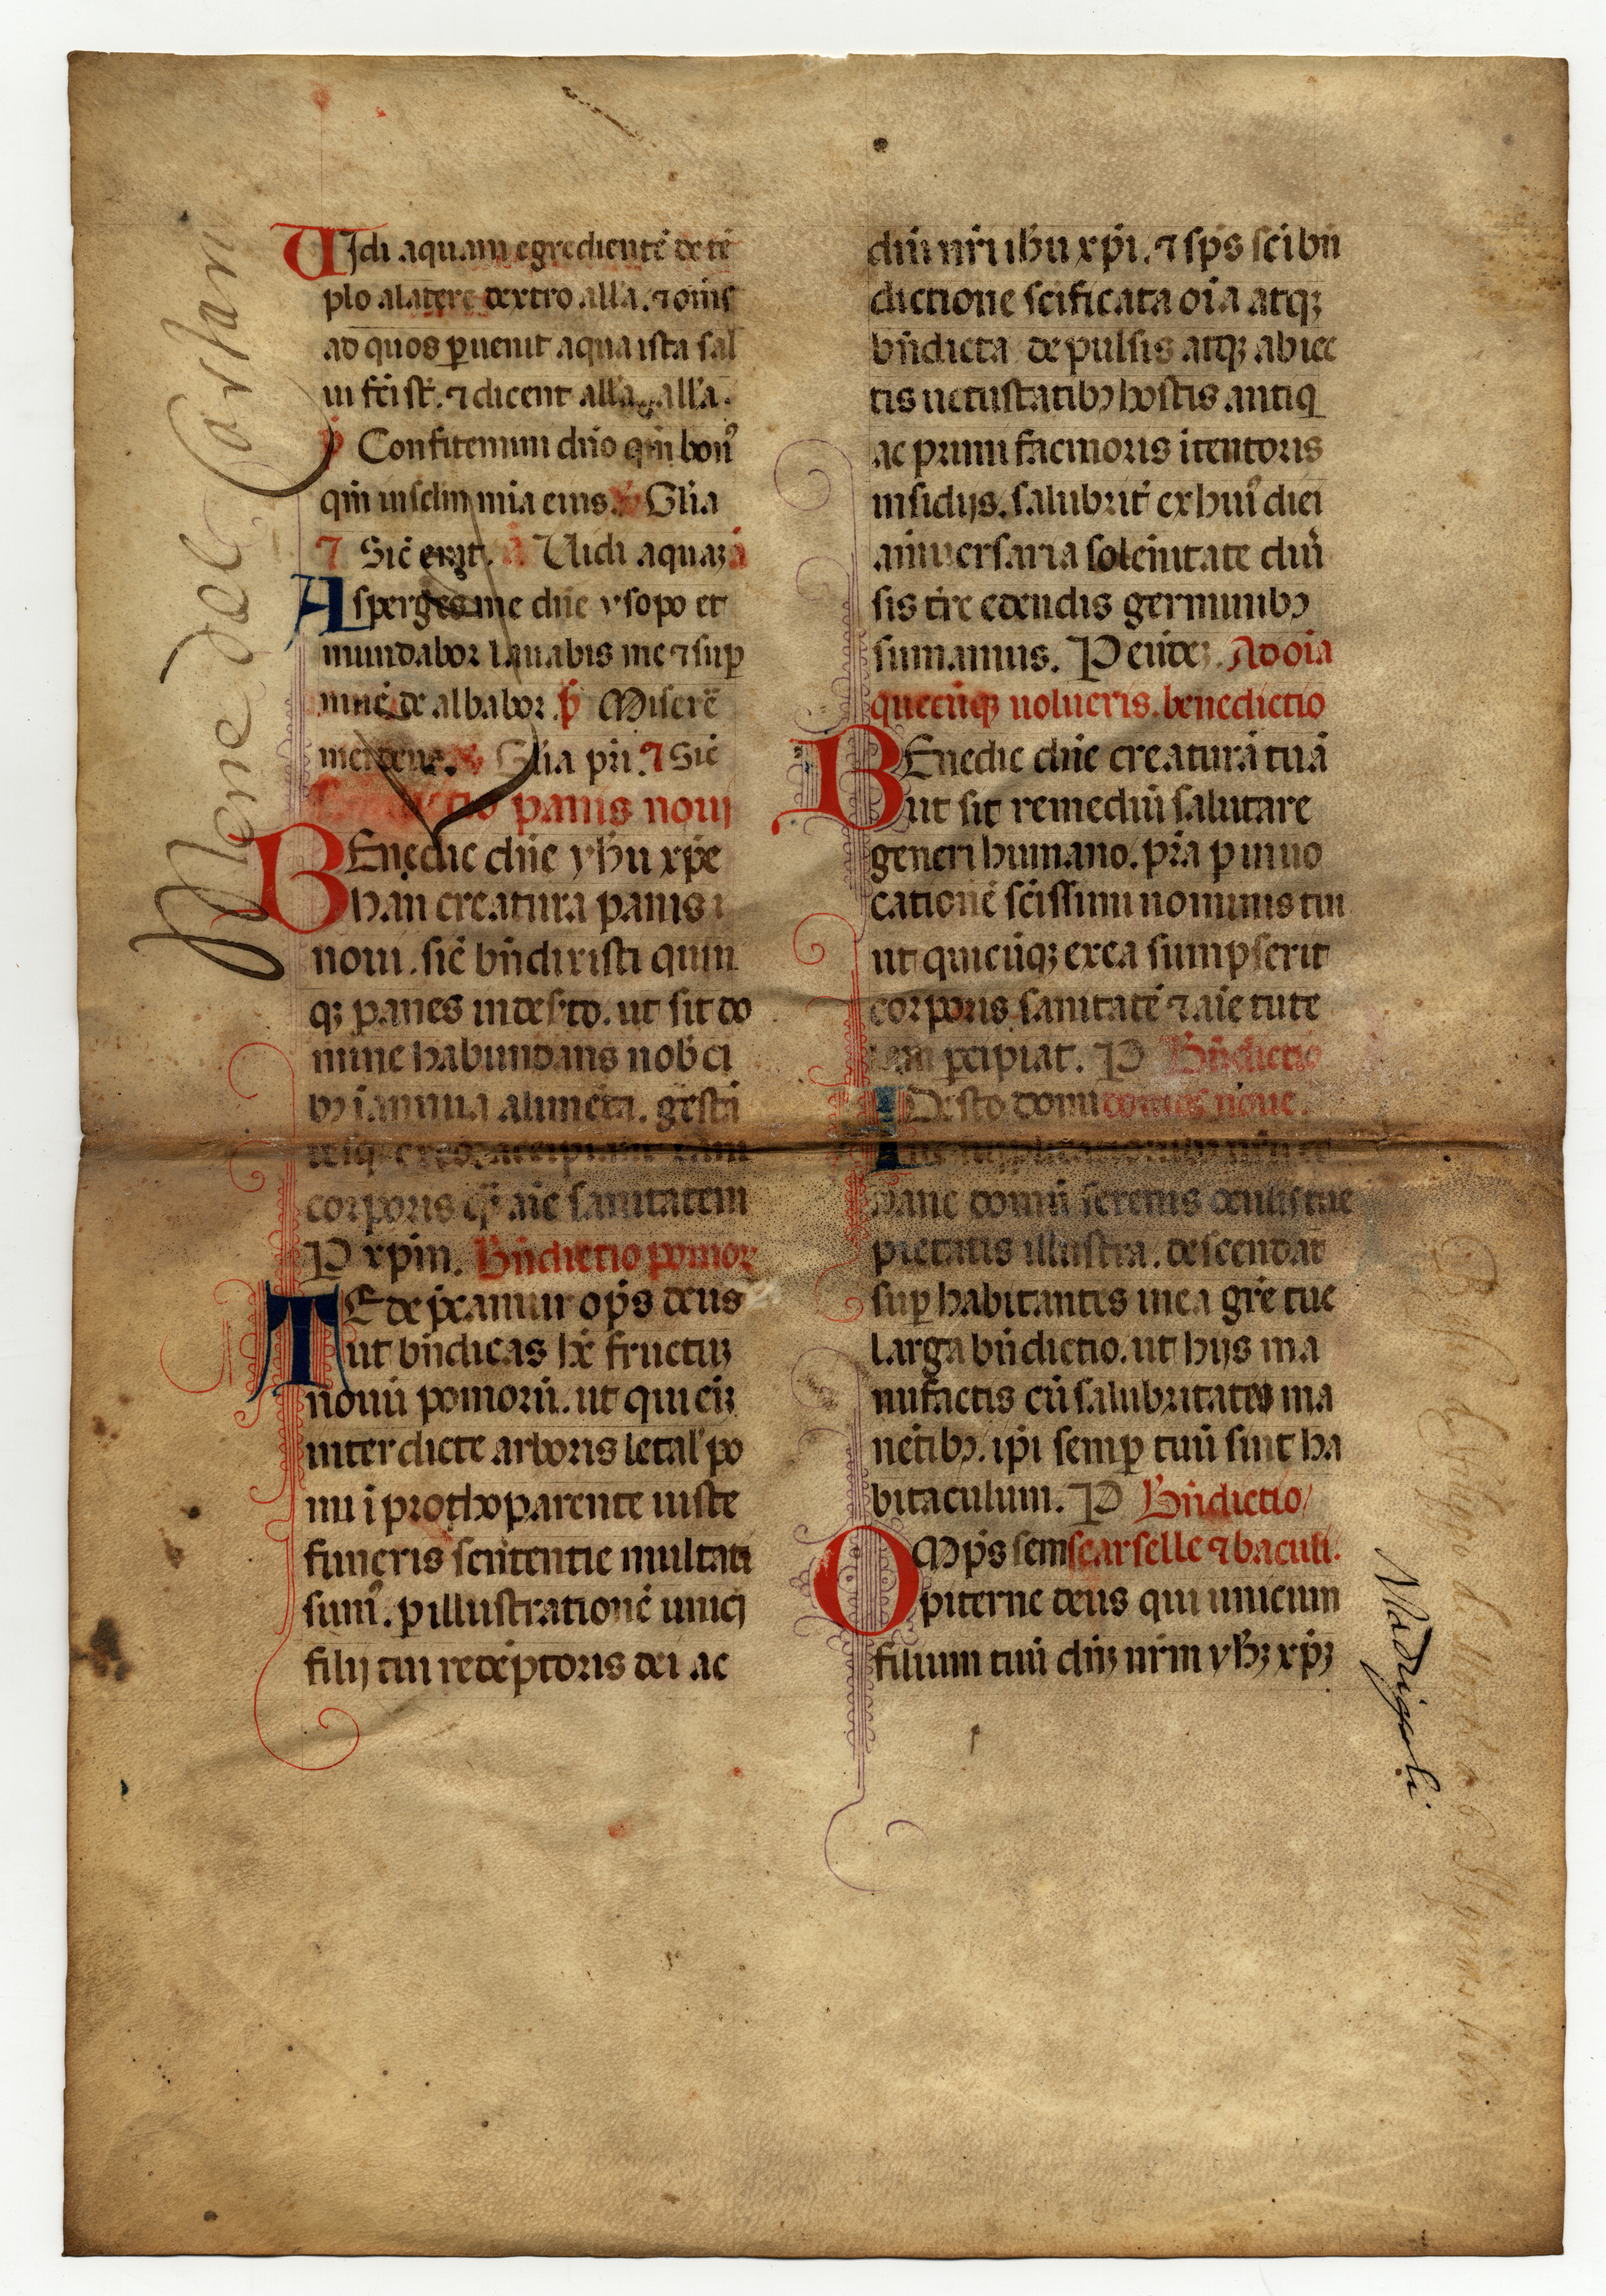 UIdi aquam egredientē de tē
plo a latere dextro all'a. ⁊ om̄s
ad quos ꝑuenit aqua ista sal
ui fc̄i st̄. ⁊ dicent all'a. all'a.
Confitemini dn̄o qm̄ bon᷒
qm̄ in sclm̄ mīa eius. Gl̄ia
⁊ Sic̄ erat. Uidi aquaꝫ
Asperges me dn̄e ysopo et
mundabor lauabis me ⁊ suꝑ
niuē de albabor. p̄ Miserē
mei deus. Gl̄ia pr̄i. ⁊ Sic̄
panis noui
BEnedic dn̄e yh̄u xp̄e
han creatura panis
noui. sic̄ bn̄dixisti quin
qꝫ panes in deſ̄to. ut sit do
mine habundans nob̄ ci
bꝫ in annua alimēta. gr̄sta
corporis qͣꝫ aīe sanitatem
P xp̄m. Bn̄dictio pomoꝝ
TE dep̄camur op̄s deus
ut bn̄dicas h̄c fructuꝫ
nouū pomorū. ut qui eiꝫ
interdicte arboris letal' po
mi ī prothoparente iuste
funeris sentētie multati
sum᷒. ꝑ illustrationē unici
filij tui redēptoris dei ac
dn̄i nr̄i ih̄u xp̄i. ⁊ sp̄s sc̄i bn̄
dictione sc̄ificata oīa atqꝫ
bn̄dicta depulsis atqꝫ abiec
tis uetustatibꝫ hostis antiq
ac primi facinoris ītentoris
insidijs. salubrit̄ ex hui᷒ diei
anniuersaria solēnitate diū
sis tr̄e edendis germinibꝫ
sumamus. P eūdeꝫ. Ad oīa
quecūqꝫ uolueris. benedictio
BEnedic dn̄e creaturā tuā
ut sit remediū salutare
generi humano. p̄ra ꝑ inuo
cationē sc̄issimi nominis tui
ut quicūqꝫ ex ea sumpserit
corporis sanitatē ⁊ aīe tute
lam ꝑcipiat. P Bn̄dictio
ADesto domi domus noue.
hanc domū serenis oculis tue
pietatis illustra. descendat
suꝑ habitantes in ea gr̄e tue
larga bn̄dictio. ut hijs ma
nufactis cū salubritates ma
nētibꝫ. ip̄i semꝑ tuū sint ha
bitaculum. P Bn̄dictio
OMp̄s sem searselle ⁊ baculi.
piterne deus qui unicum
filium tuū dn̄ꝫ nr̄m yh̄ꝫ xp̄ꝫ
Madrigali